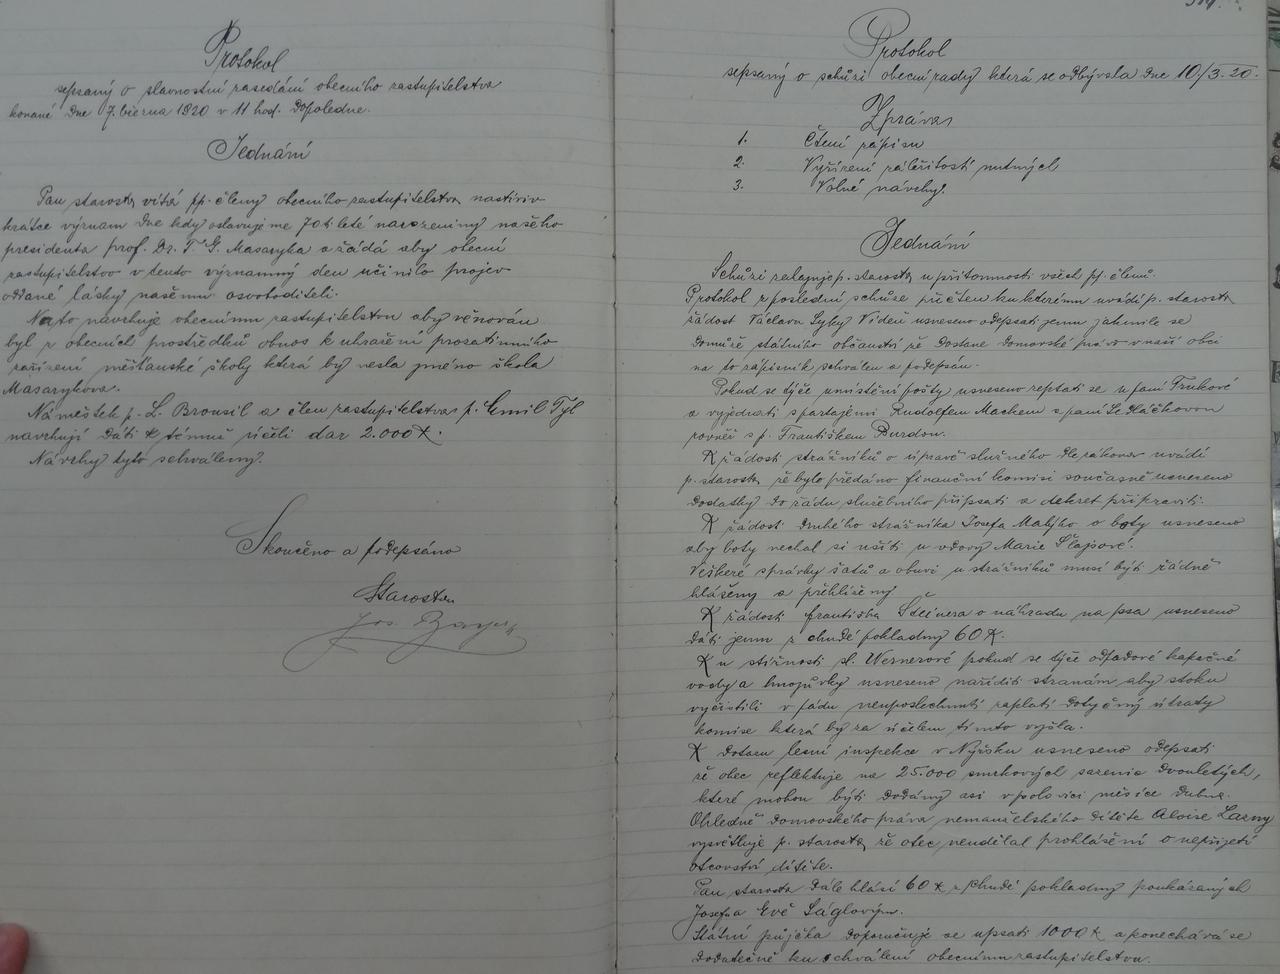 Protokol
sepsaný o slavnostní zasedání obecního zastupitelstva
konané dne 7. března 1920 v 11 hod. dopoledne.
Jednání
Pan starosta vítá pp. členy obecního zastupitelstva nastíniv
krátce význam dne kdy oslavujeme 70ti leté narozeniny našeho
presidenta prof. Dr. T. G. Masaryka a žádá aby obecní
zastupitelstvo v tento významný den učinilo projev
oddané lásky našemu osvoboditeli.
Nato navrhuje obecnímu zastupitelstvu aby věnován
byl z obecních prostředků obnos k uhražení prozatimního
zařízení měšťanské školy která by nesla jméno škola
Masarykova.
Náměstek p. L. Brousil a člen zastupitelstva p. Emil Tyl
navrhují dáti k témuž účeli dar 2.000 K.
Návrhy tyto schváleny.
Skončeno a podepsáno
Starosta
Jos.
Protokol
sepsaný o schůzi obecní rady která se odbývala dne 10./3. 20.
Zpráva
1. Čtení zápisu
2. Vyřízení záležitostí nutných
3. Volné návrhy.
Jednání
Schůzi zahajuje p. starosta u přítomnosti všech pp. členů.
Protokol z poslední schůze přečten ku kterému uvádí p. starosta
žádost Václava Vídeň usneseno odepsati jemu jakmile se
domůže státního občanství že dostane domovské právo v naší obci
na to zápisník schválen a podepsán.
Pokud se týče umístění pošty usneseno zeptati se u paní Trnkové
a vyjednati s partajemi Rudolfem Machem s paní Sedláčkovou
rovněž s p. Františkem Burdou.
K žádosti strážníků o úpravě služného dle zákona uvádí
p. starosta že bylo předáno finanční komisi současně usneseno
dodatky do řádu služebního připsati a dekret připraviti.
K žádosti druhého strážníka Josefa Malýho o boty usneseno
aby boty nechal si ušíti u vdovy Marie Šlajsové.
Veškeré správky šatů a obuvi u strážníků musí býti řádně
hlášeny a přehlíženy
K žádosti Františka Steinera o náhradu na psa usneseno
dáti jemu z chudé pokladny 60 K.
K u stížnosti sl. Wernerové pokud se týče odpadové kapečné
vody a hnojůvky usneseno naříditi stranám aby stoku
vyčistili v pádu neuposlechnutí zaplatí dotyčný útraty
komise která by za účelem tímto vyšla.
K dotazu lesní inspekce v Nýrsku usneseno odepsati
že obec reflektuje na 25.000 smrkových sazenic dvouletých,
které mohou býti dodány asi v polovici měsíce dubna.
Ohledně domovského práva nemanželského dítěte Aloise Lazny
vysvětluje p. starosta že otec neudělal prohlášení o nepřijetí
otcovství dítěte.
Pan starosta dále hlásí 60 K z chudé pokladny poukázaných
Josefu a Evě Ságlovým.
Státní půjčka doporučuje se upsati 1000 K a ponechává se
dodatečně ku schválení obecnímu zastupitelstvu.